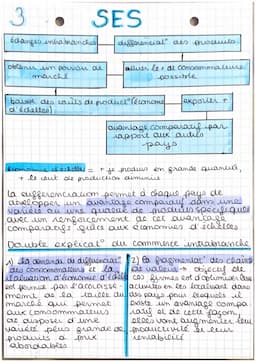 3 SES
échanges intrabranches
différenciat° des produits
obtenir un pouvoir de marché
attirer le + de consommateurs possible
baisse des coûts de product° (économie d'échelles)
exporter +
avantage comparatif par rapport aux autres pays
= + je produis en grande quantité,
+ le cout de production diminue
La différenciation permet à chaque pays de
développer un avantage comparatif dans une
variété ou une qualité de produits spécifiques
avec un renforcement de cet avantage
comparatif grâce aux économies d'échelles
Double explicat° du commerce intrabranche
1) la demande de différenciat°
des consommateurs et la
réalisation d'économie d'éch
est permise par l'accroisse-
ment de la taille du
marché qui permet
aux consommateurs
de disposer d'une
variété plus grande de
produits à prix
abordables
2) la fragmentat° des chaînes
de valeur → objectif de
ces firmes est d'optimiser leurs
activités en les localisant dans
des pays pour lesquels il
existe un avantage compa-
ratif et de cette façon,
elles vont augmenter leur
productivité et leur
rentabilité